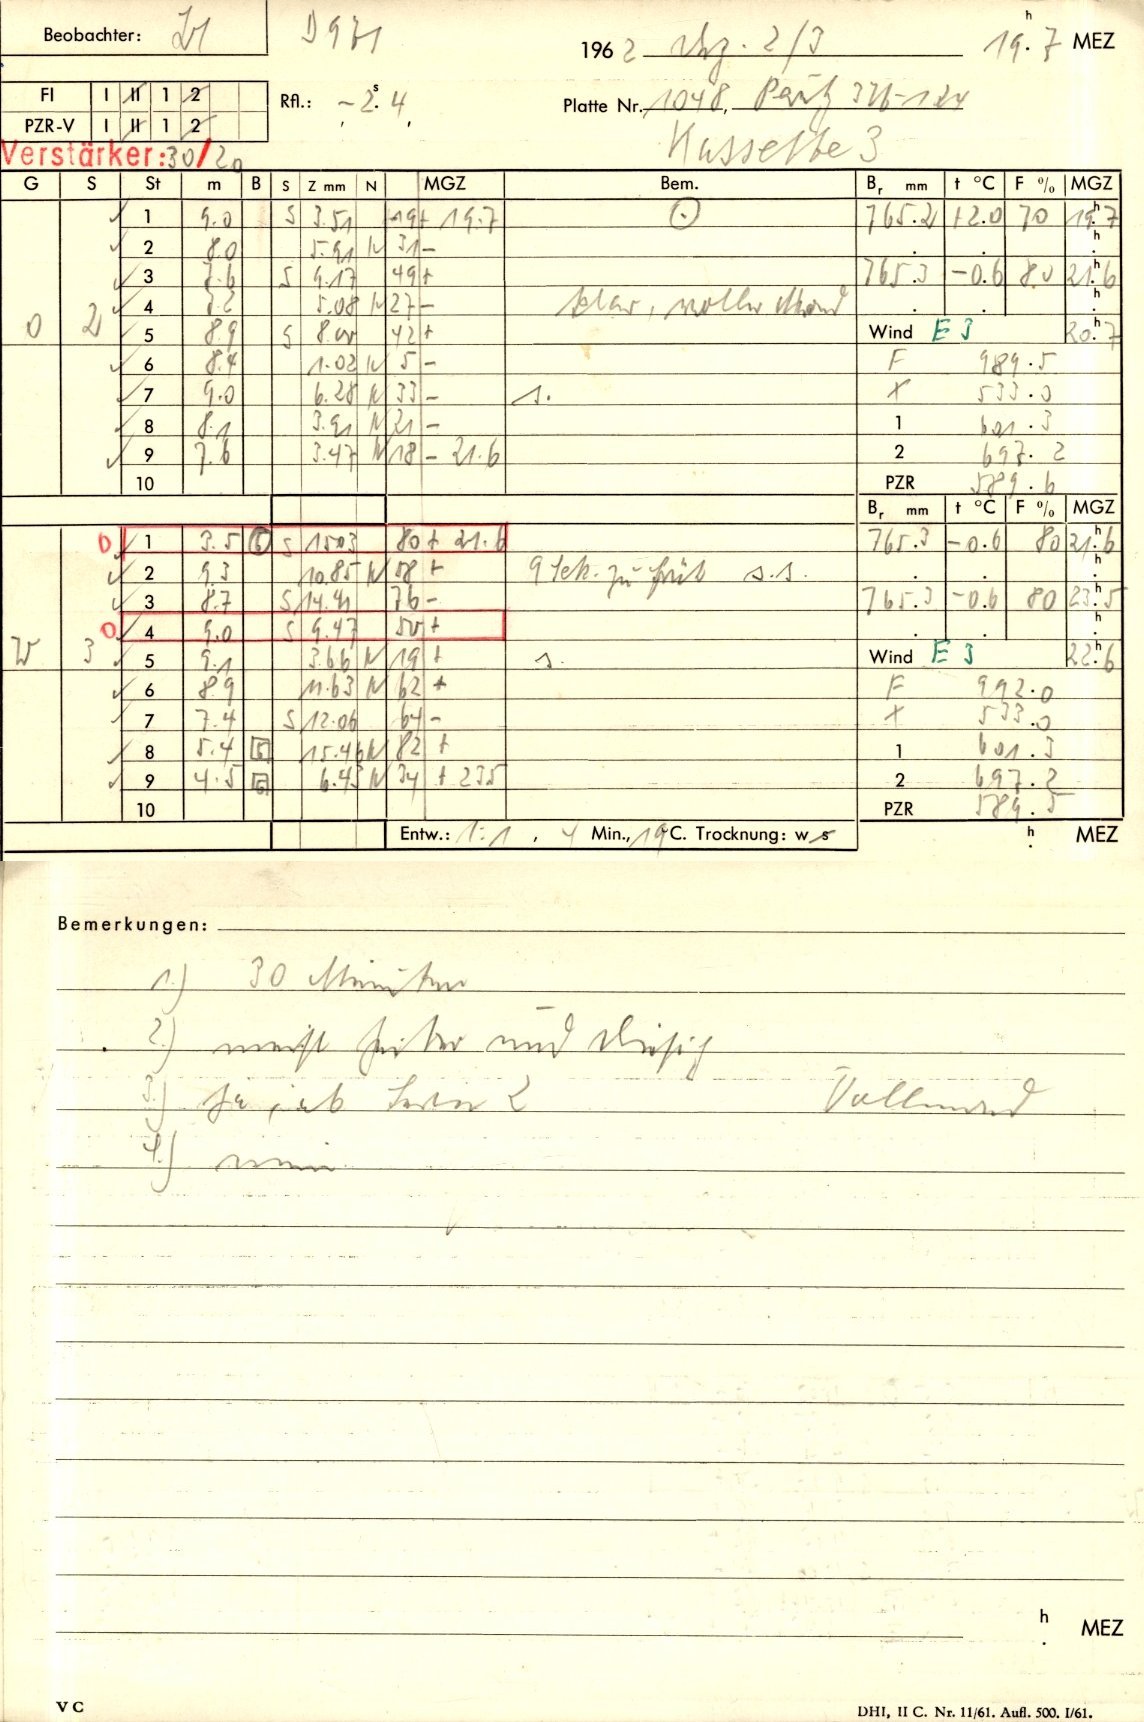 Beobachter: D971 1962 2/3 19.7 h MEZ
FI I II 1 2 Rfl.: -2.4 s Platte Nr. 1048,
PZR-V I II 1 2 Kassette 3
Verstärker: 30/20
G S St m B S Z mm N MGZ Bem. Br mm t °C F % MGZ
1 9.0 S 3.51 19+ 19.7 765.2 +2.0 70 19.7 h
2 8.0 5.91 N 31- h
3 7.6 S 9.17 49+ 765.3 -0.6 80 21.6 h
4 7.2 5.08 N 27- klar, voller Mond h
0 2 5 8.9 S 8.00 42+ Wind E 3 20.7 h
6 8.4 1.02 N 5- F 989.5
7 9.0 6.28 N 33- s. X 533.0
8 8.1 3.91 N 21- 1 601.3
9 7.6 3.47 N 18- 21.6 2 697.2
10 PZR 589.6
Br mm t °C F % MGZ
0 1 3.5 6 S 15.03 80+ 21.6 765.3 -0.6 80 21.6 h
2 9.3 10.85 N 58+ 9 Sek. zu früh s.s. h
3 8.7 S 14.41 76- 765.3 -0.6 80 23.5 h
0 4 9.0 S 9.47 50+ h
W 3 5 9.1 3.66 N 19+ s. Wind E 3 22.6 h
6 8.9 11.63 N 62+ F 992.0
7 7.4 S 12.06 64- X 533.0
8 5.4 6 15.46 N 82+ 1 601.3
9 4.5 6 6.43 N 34+ 23.5 2 697.2
10 PZR 589.5
Entw.: 1:1, 4 Min., 19°C. Trocknung: w s h MEZ
Bemerkungen:
1.) 30 Minuten
2.) meist heiter und diesig
3.) ja, ab Serie 2 Vollmond
4.) nein
h MEZ
V C DHI, II C. Nr. 11/61. Aufl. 500. I/61.